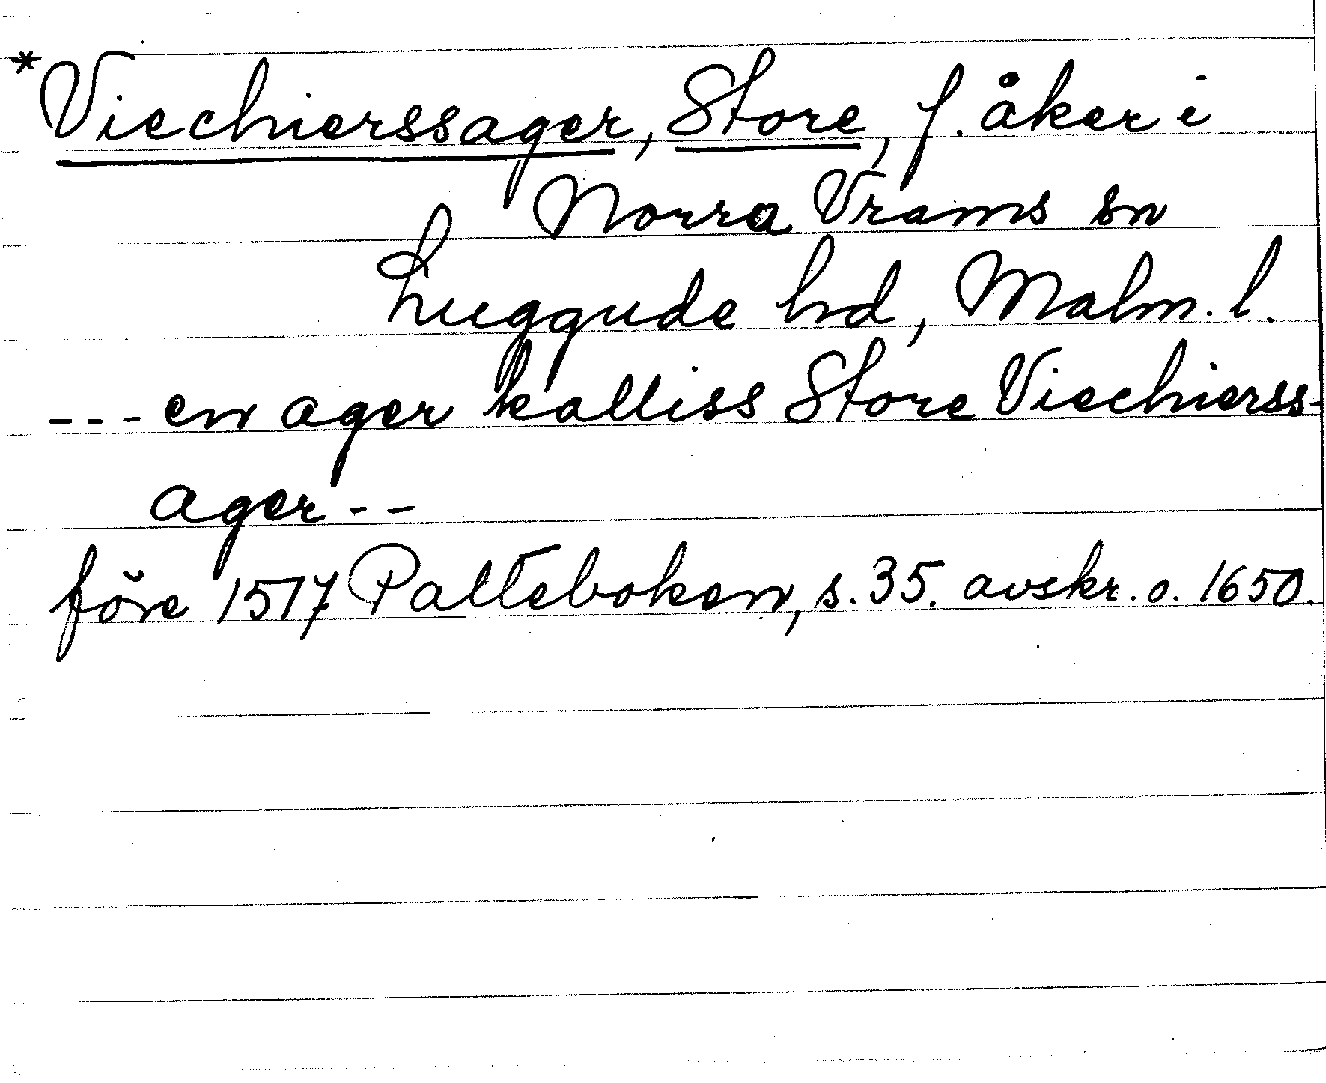 *Viechierssager, Store, f. åker i
Norra Vrams sn
Luggude hd, Malm. l.
--- en ager kalliss Store Viechierss-
ager --
före 1517 Palteboken, s. 35. avskr. o. 1650.